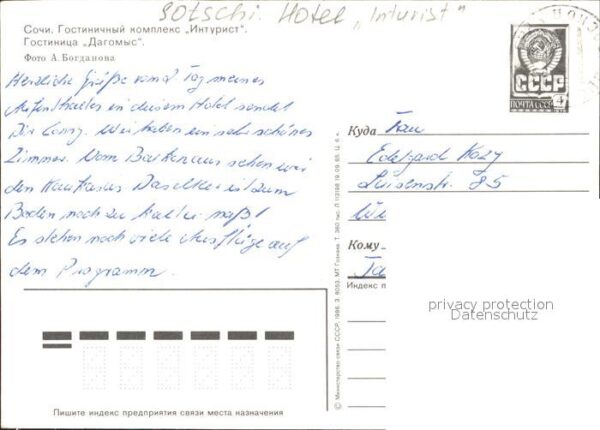 Sotschi. Hotel „Inturist“
Сочи. Гостиничный комплекс „Интурист“.
Гостиница „Дагомыс“.
Фото А. Богданова
Herzliche Grüße vom Tag meines
Aufenthaltes in diesem Hotel sendet
Dir Conny. Wir haben ein sehr schönes
Zimmer. Vom Balkon aus sehen wir
den Kaukasus. Das Meer ist zum
Baden noch zu kalt u. naß!
Es stehen noch viele Ausflüge auf
dem Programm.
СССР
ПОЧТА СССР
4
Куда Frau
Edelgard Kozy
Luisenstr. 85
Кому
Индекс п
privacy protection
Datenschutz
© Министерство связи СССР, 1986. З. 8053. МТ Гознака. Т. 360 тыс.
Пишите индекс предприятия связи места назначения